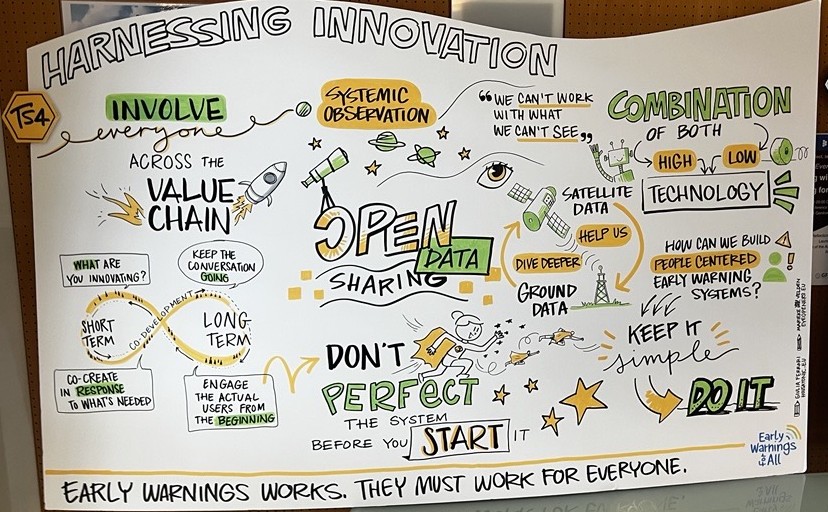 HARNESSING INNOVATION
TS4
INVOLVE
everyone
ACROSS THE
VALUE
CHAIN
SYSTEMIC
OBSERVATION
"WE CAN'T WORK
WITH WHAT
WE CAN'T SEE"
COMBINATION
OF BOTH
HIGH
LOW
TECHNOLOGY
OPEN
DATA
SHARING
SATELLITE
DATA
HELP US
DIVE DEEPER
GROUND
DATA
HOW CAN WE BUILD
PEOPLE CENTERED
EARLY WARNING
SYSTEMS?
KEEP IT
simple
DO IT
WHAT ARE
YOU INNOVATING?
KEEP THE
CONVERSATION
GOING
SHORT
TERM
CO-DEVELOPMENT
LONG
TERM
CO-CREATE
IN RESPONSE
TO WHAT'S NEEDED
ENGAGE
THE ACTUAL
USERS FROM
THE BEGINNING
DON'T
PERFECT
THE SYSTEM
BEFORE YOU START IT
Early
Warnings
for All
EARLY WARNINGS WORKS. THEY MUST WORK FOR EVERYONE.